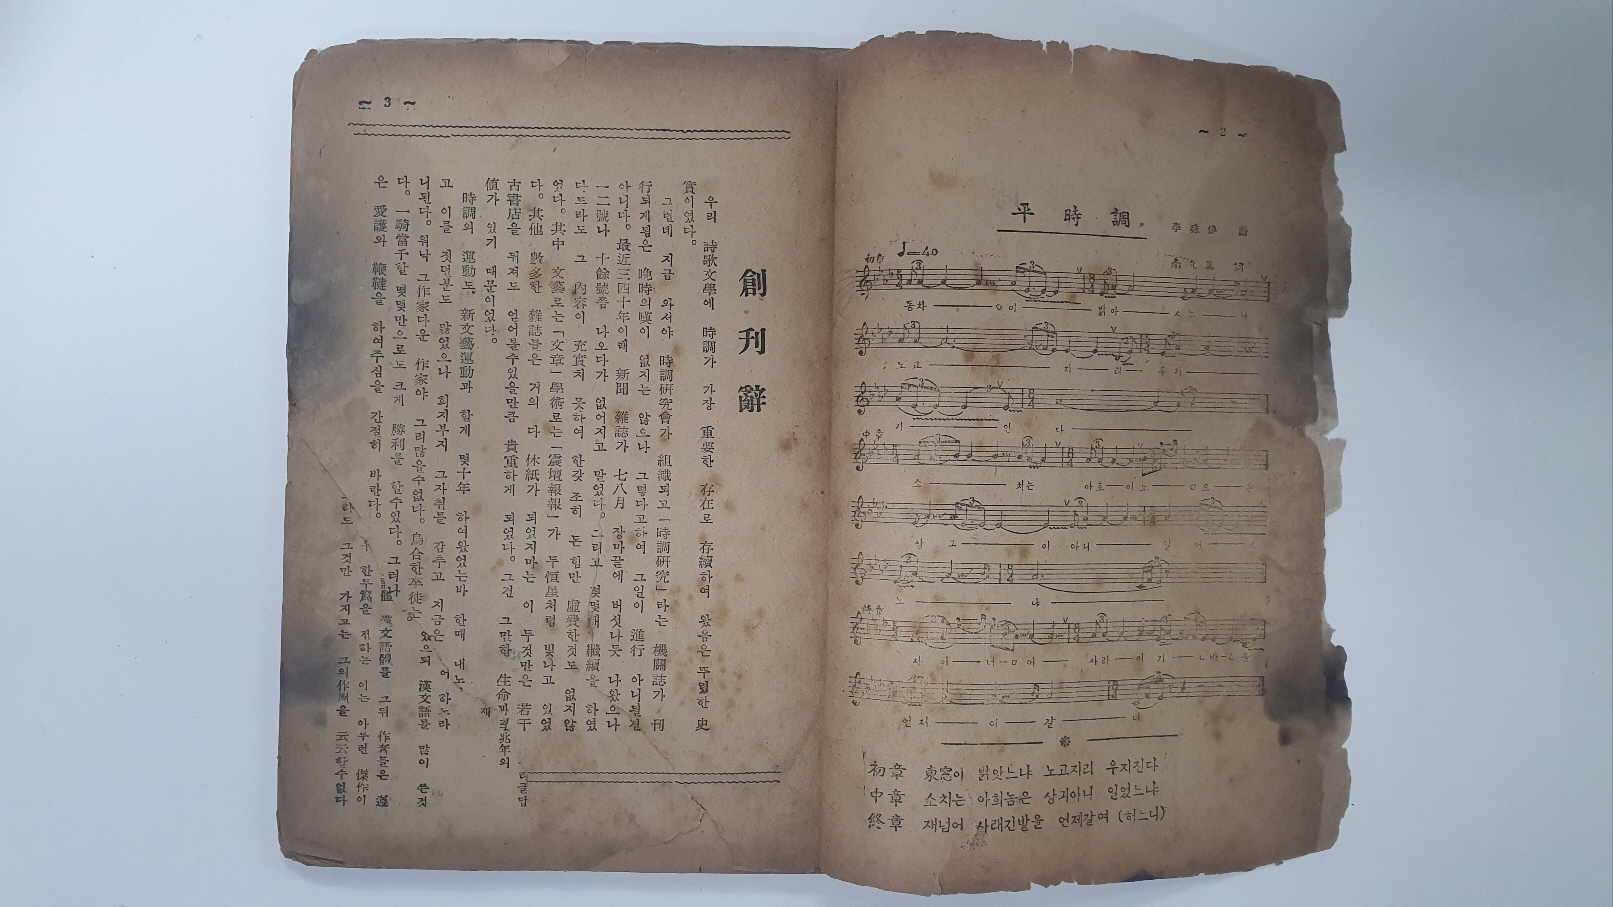 ~ 2 ~
平時調
南九萬 詞
♩=40
初章
동창 ㅇ이 밝아 스느 냐
노고 지 리 우지
기 인 다
中章
소 치는 아흐이노 ㅁ으
상 그 이 아니 일 어
노 냐
終章
재 이 너ㅁ어 사라 이기
언제 이 갈 너
初章 東窓이 밝앗느냐 노고지리 우지진다
中章 소치는 아희놈은 상긔아니 일었느냐
終章 재넘어 사래긴밭을 언제갈여 (허느니)
~ 3 ~
創刊辭
우리 詩歌文學에 時調가 가장 重要한 存在로 存續하여 왔음은 뚜렸한 史
實이였다。
그런데 지금 와서야 時調硏究會가 組織되고「時調硏究」라는 機關誌가 刊
行되게됨은 晩時의嘆이 없지는 않으나 그렇다고하여 그일이 進行 아니될건
아니다。最近三四十年이래 新聞 雜誌가 七八月 장마끝에 버섯나듯 나왔으나
一二號나 十餘號쯤 나오다가 없어지고 말었다。그리고 몇몇해 繼續을 하였
다드라도 그 內容이 充實치 못하여 한갖 조히 돈 힘만 虛費한것도 없지않
었다。其中 文藝로는「文章」學術로는「震壇報報」가 두恒星처럼 빛나고 있었
다。其他 數多한 雜誌들은 거의 다 休紙가 되었지마는 이 두것만은 若干
古書店을 뒤져도 얻어볼수있을만큼 貴重하게 되었다。그건 그만한 生命
値가 있기 때문이었다。
時調의 運動도 新文藝運動과 함께 몇十年 하여왔었는바 한때 내노
고 이를 짓던분도 많었으나 회지부지 그자취를 감추고 지금은 여 하노라
니된다。워낙 그作家다운 作家야 그리많을수없다。烏合한卒徒는
다。一騎當千할 몇몇만으로도 크게 勝利를 할수있다。그러나
은 愛護와 鞭韃을 하여주심을 간절히 바란다。
兆年의
있으되 漢文語를 많이 쓴것
漢文語體를 그뒤 作者들은 蓬
한두篇을 전하는 이는 아무런 傑作이
라도 그것만 가지고는 그의作風을 云云할수없다